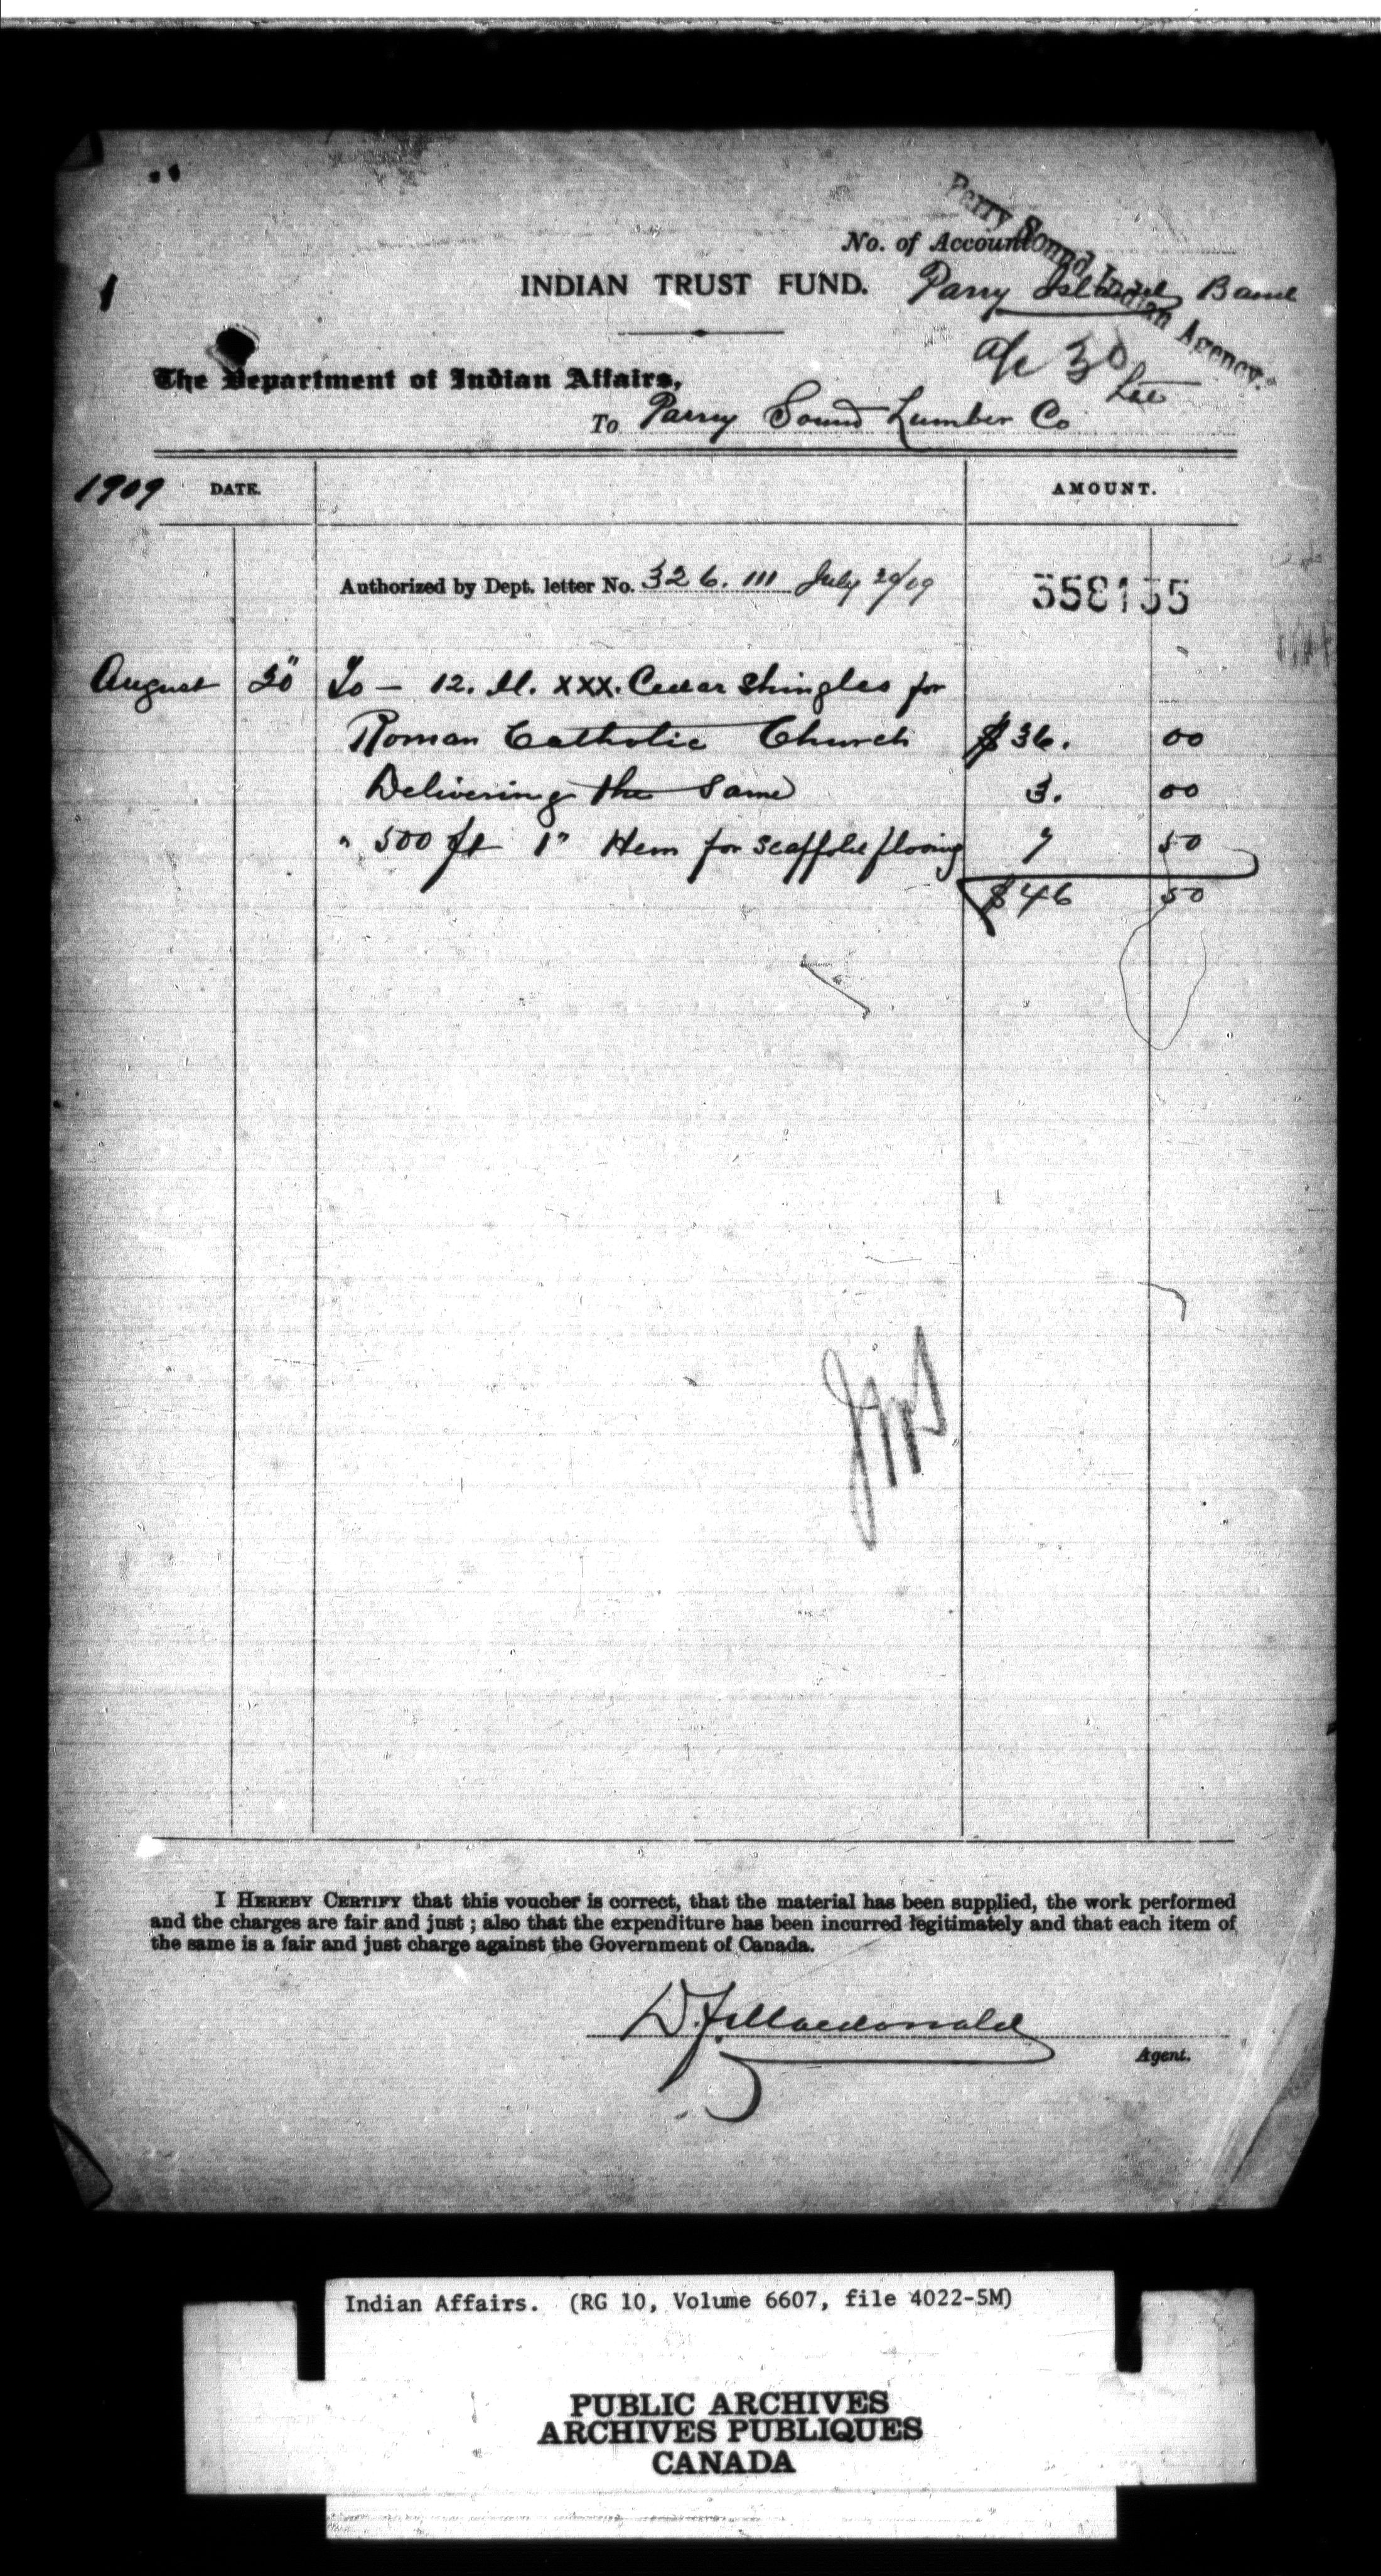 Parry Sound Indian Agency.
No. of Account
1
INDIAN TRUST FUND.
Parry Island Band
a/c 30
The Department of Indian Affairs,
To Parry Sound Lumber Co
1909 DATE. AMOUNT.
Authorized by Dept. letter No. 326.111 July 29/09
358135
August 30" To — 12. M. XXX. Cedar Shingles for
Roman Catholic Church $36. 00
Delivering the same 3. 00
" 500 ft 1" Hem for scaffold flooring 7 50
$46 50
I HEREBY CERTIFY that this voucher is correct, that the material has been supplied, the work performed
and the charges are fair and just; also that the expenditure has been incurred legitimately and that each item of
the same is a fair and just charge against the Government of Canada.
D. F. Macdonald
Agent.
Indian Affairs. (RG 10, Volume 6607, file 4022-5M)
PUBLIC ARCHIVES
ARCHIVES PUBLIQUES
CANADA